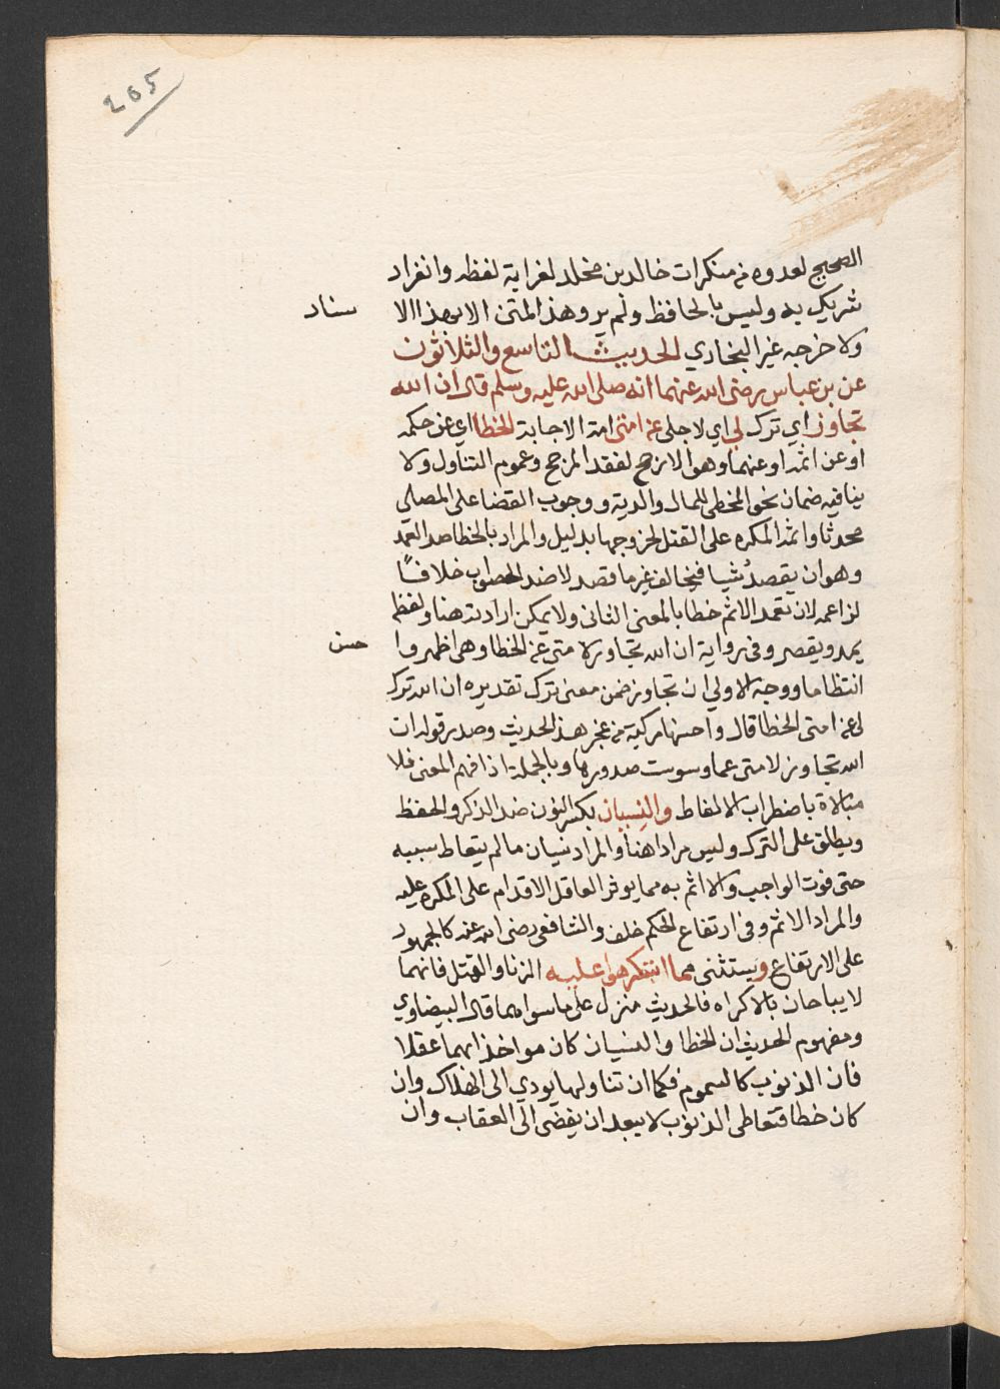 265
الصحيح لعدوه من منكرات خالد بن مخلد لغرابة لفظه وانفراد
شريك به وليس بالحافظ ولم يرو هذا المتن الا بهذا الا سناد
ولا خرجه غير البخاري الحديث التاسع والثلاثون
عن بن عباس رضى الله عنهما انه صلى الله عليه وسلم قال ان الله
تجاوز اي ترك لي اي لاجلي عن امتى امة الاجابة الخطا اي عن حكمه
او عن اثمه او عنهما وهو الارجح لفقد المرجح وعموم التناول ولا
ينافيه ضمان نحو المخطى للمال والدية ووجوب القضا على المصلى
محدثا واثم المكره على القتل لخروجها بدليل والمراد بالخطا ضد العمد
وهو ان يقصد شيا فيخالف غير ما قصد لا ضد الصواب خلافًا
لزاعمه لان تعمد الاثم خطا بالمعنى الثانى ولا يمكن ارادته هنا ولفظه
يمد ويقصر وفى رواية ان الله تجاوز لامتى عن الخطا وهى اظهر وا حسن
انتظاما ووجه الاولى ان تجاوز ضمن معنى ترك تقديره ان الله ترك
لى عن امتى الخطا قال واحسنها مركبة من عجز هذا الحديث وصدر قوله ان
الله تجاوز لامتى عما وسوست صدورها وبالجملة اذا فهم المعنى فلا
مبالاة باضطراب الالفاظ والنِسيان بكسر النون ضد الذكر والحفظ
ويطلق على الترك وليس مرادا هنا والمراد نسيان مالم يتعاط سببه
حتى فوت الواجب والا اثم به مما يوثر العاقل الاقدام على المكره عليه
والمراد الاثم وفى ارتفاع الحكم خلف والشافعى رضى الله عنه كالجمهور
على الارتفاع ويستثنى مما استكرهوا عليه الزنا والقتل فانهما
لا يباحان بالاكراه فالحديث منزل على ما سواهما قال البيضاوي
ومفهوم الحديث ان الخطا والنسيان كان مواخذا بهما عقلا
فان الذنوب كالسموم فكما ان تناولها يودي الى الهلاك وان
كان خطا فتعاطى الذنوب لا يبعد ان يفضى الى العقاب وان